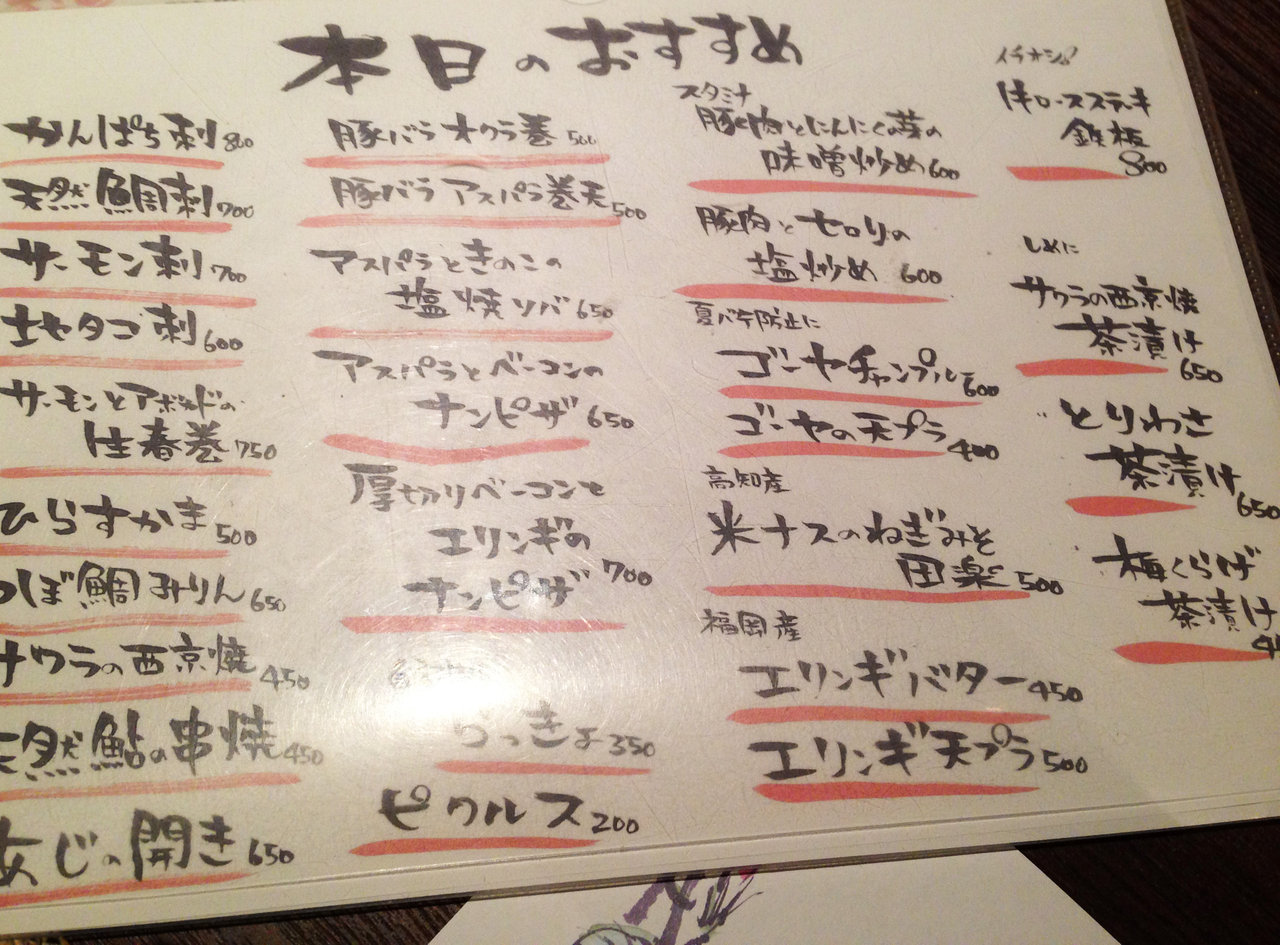 本日のおすすめ
かんぱち刺 800
天然鯛刺 700
サーモン刺 700
地タコ刺 600
サーモンとアボカドの
生春巻 750
ひらすかま 500
つぼ鯛みりん 650
サワラの西京焼 450
天然鮎の串焼 450
あじの開き 650
豚バラオクラ巻 500
豚バラアスパラ巻天 500
アスパラときのこの
塩焼ソバ 650
アスパラとベーコンの
ナンピザ 650
厚切りベーコンと
エリンギの
ナンピザ 700
らっきょ 350
ピクルス 200
スタミナ
豚肉とにんにくの芽の
味噌炒め 600
豚肉とセロリの
塩炒め 600
夏バテ防止に
ゴーヤチャンプルー 600
ゴーヤの天プラ 400
高知産
米ナスのねぎみそ
田楽 500
福岡産
エリンギバター 450
エリンギ天プラ 500
イチオシ!
牛ロースステーキ
鉄板
800
しめに
サワラの西京焼
茶漬け
650
とりわさ
茶漬け
650
梅くらげ
茶漬け